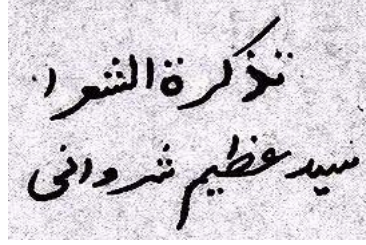 تذكرة الشعرا
سيد عظيم شروانى